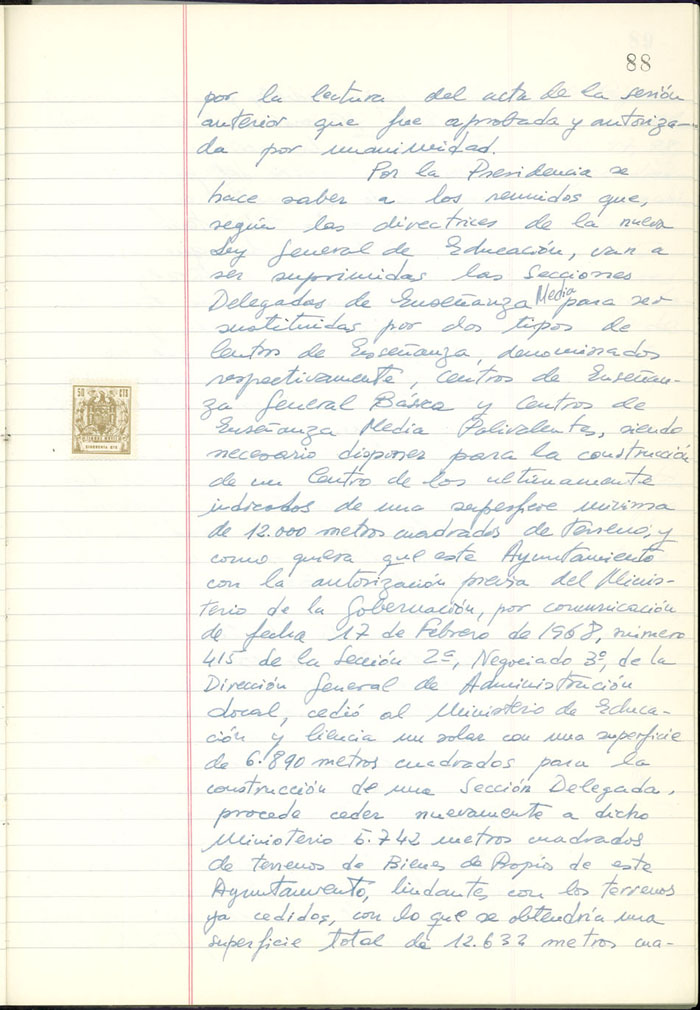 88
por la lectura del acta de la sesión
anterior que fue aprobada y autoriza-
da por unanimidad.
Por la Presidencia se
hace saber a los reunidos que,
según las directrices de la nueva
Ley General de Educación, van a
ser suprimidas las Secciones
Delegadas de Enseñanza Media para ser
sustituidas por dos tipos de
Centros de Enseñanza, denominados
respectivamente, Centros de Enseñan-
za General Básica y Centros de
Enseñanza Media Polivalentes, siendo
necesario disponer para la construcción
de un Centro de los ultimamente
indicados de una superficie minima
de 12.000 metros cuadrados de terreno, y
como quiera que este Ayuntamiento
con la autorización previa del Minis-
terio de la Gobernación, por comunicación
de fecha 17 de Febrero de 1968, número
415 de la Sección 2ª, Negociado 3º, de la
Dirección General de Administración
Local, cedió al Ministerio de Educa-
ción y Ciencia un solar con una superficie
de 6.890 metros cuadrados para la
construcción de una Sección Delegada,
procede ceder nuevamente a dicho
Ministerio 5.742 metros cuadrados
de terrenos de Bienes de Propios de este
Ayuntamiento, lindantes con los terrenos
ya cedidos, con lo que se obtendría una
superficie total de 12.632 metros cua-
50 CTS
CINCUENTA CTS